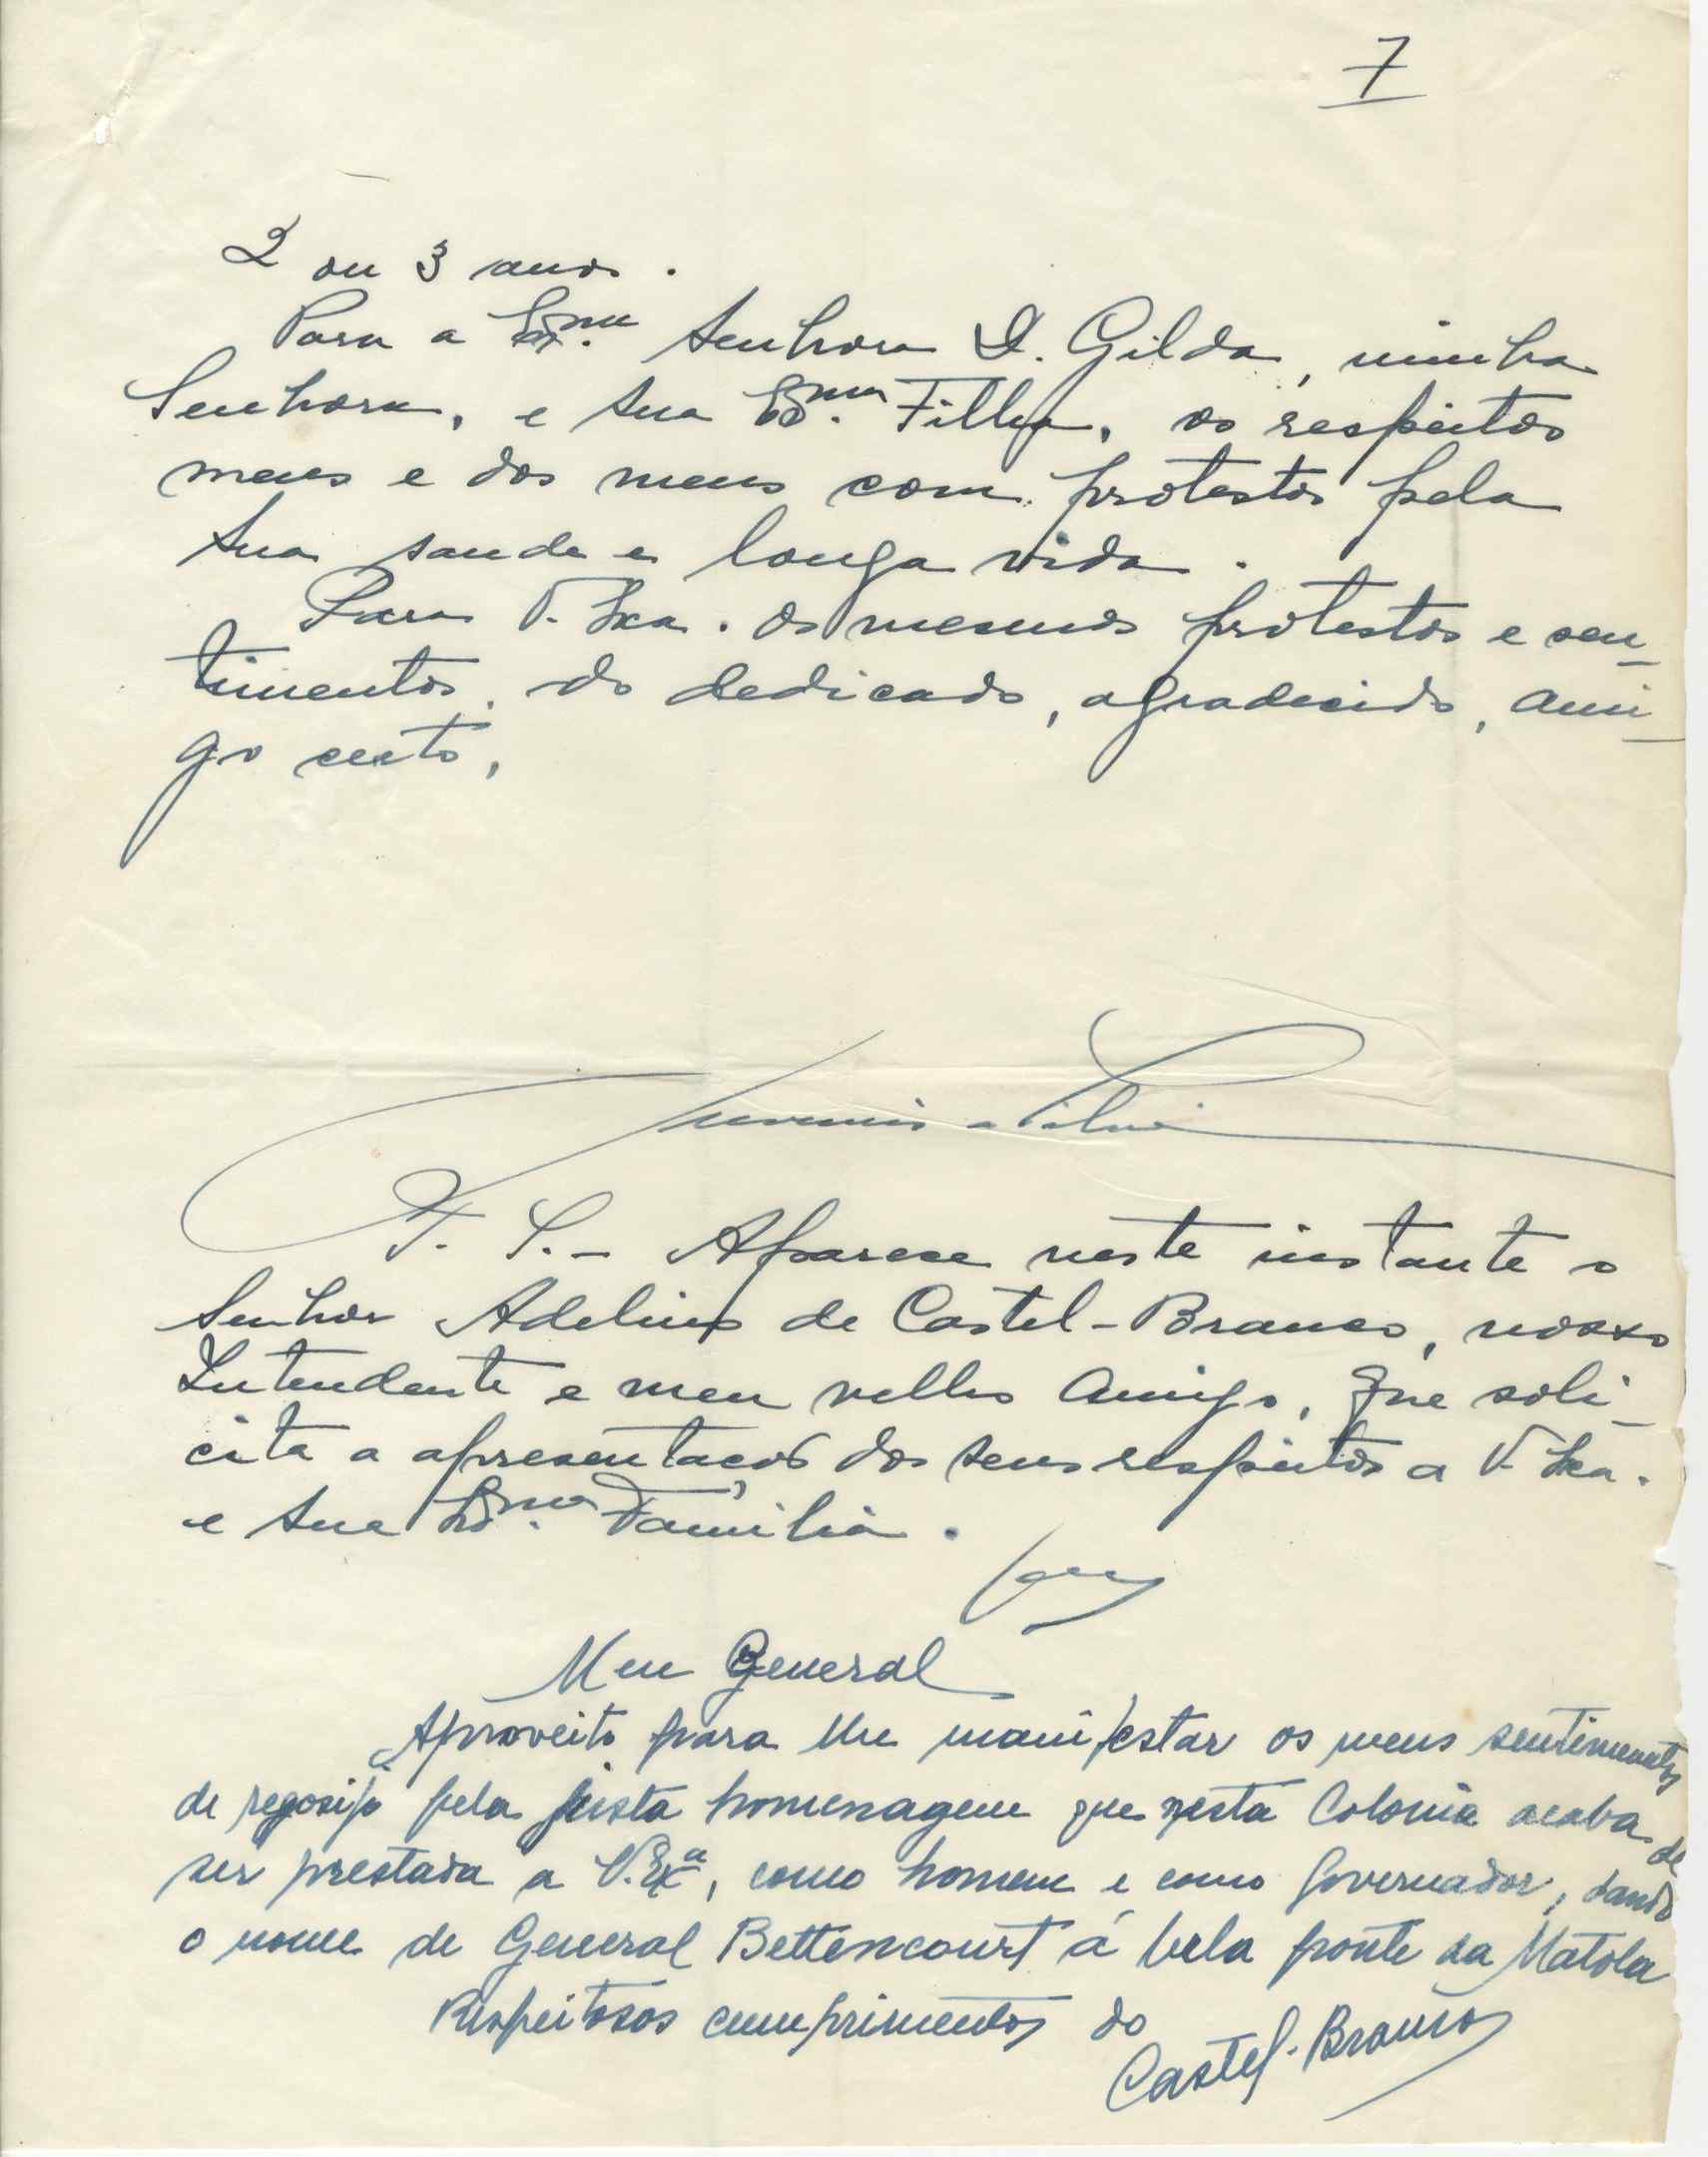 7
2 ou 3 anos.
Para a Exma. Senhora D. Gilda, minha
Senhora, e sua Exma. Filha, os respeitos
meus e dos meus com protestos pela
sua saude e longa vida.
Para V. Exa. os mesmos protestos e sen-
timentos do dedicado, agradecido, ami-
go certo,
P. S. - Aparece neste instante o
Senhor Adelino de Castel-Branco, nosso
Intendente e meu velho amigo, que soli-
cita a apresentação dos seus respeitos a V. Exa.
e sua Exma. Familia.
Meu General
Aproveito para lhe manifestar os meus sentimentos
de regosijo pela justa homenagem que nesta Colonia acaba de
ser prestada a V. Exª, como homem e como Governador, dando
o nome de General Bettencourt á bela ponte da Matola
Respeitosos cumprimentos do
Castel-Branco